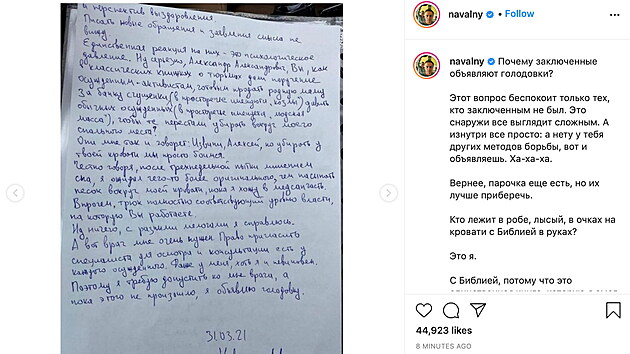 и перспектив выздоровления
Писать новые обращения и заявления смысла не
вижу
Единственная реакция на них - это психологическое
давление. Ну серьезно, Александр Александрович, Вы, как
в классических книжках о тюрьмах даете поручение
осужденным-активистам, готовым продать родную маму
За банку сгущенки (в просторечие козлы) давить
обычных осужденных (в просторечие
масса), чтобы те перестали убирать вокруг моего
спального места?
Они мне так и говорят: Извини, Алексей, но убирать у
твоей кровати мы просто боимся.
Честно говоря, после трехнедельной пытки лишением
сна, я ожидал чего-то более оригинального, чем насыпать
песок вокруг моей кровати, пока я хожу в медсанчасть.
Впрочем, трюк полностью соответствующий уровню власти,
на которую Вы работаете.
Ну ничего, с разными мелочами я справлюсь.
А вот врач мне очень нужен. Право пригласить
специалиста для осмотра и консультации есть у
каждого осужденного. Даже у меня, хоть я и невиновен.
Поэтому я требую допустить ко мне врача, а
пока этого не произошло, я объявляю голодовку.
31.03.21
navalny • Follow
navalny Почему заключенные
объявляют голодовки?
Этот вопрос беспокоит только тех,
кто заключенным не был. Это
снаружи все выглядит сложным. А
изнутри все просто: а нету у тебя
других методов борьбы, вот и
объявляешь. Ха-ха-ха.
Вернее, парочка еще есть, но их
лучше приберечь.
Кто лежит в робе, лысый, в очках на
кровати с Библией в руках?
Это я.
С Библией, потому что это
44,923 likes
8 MINUTES AGO